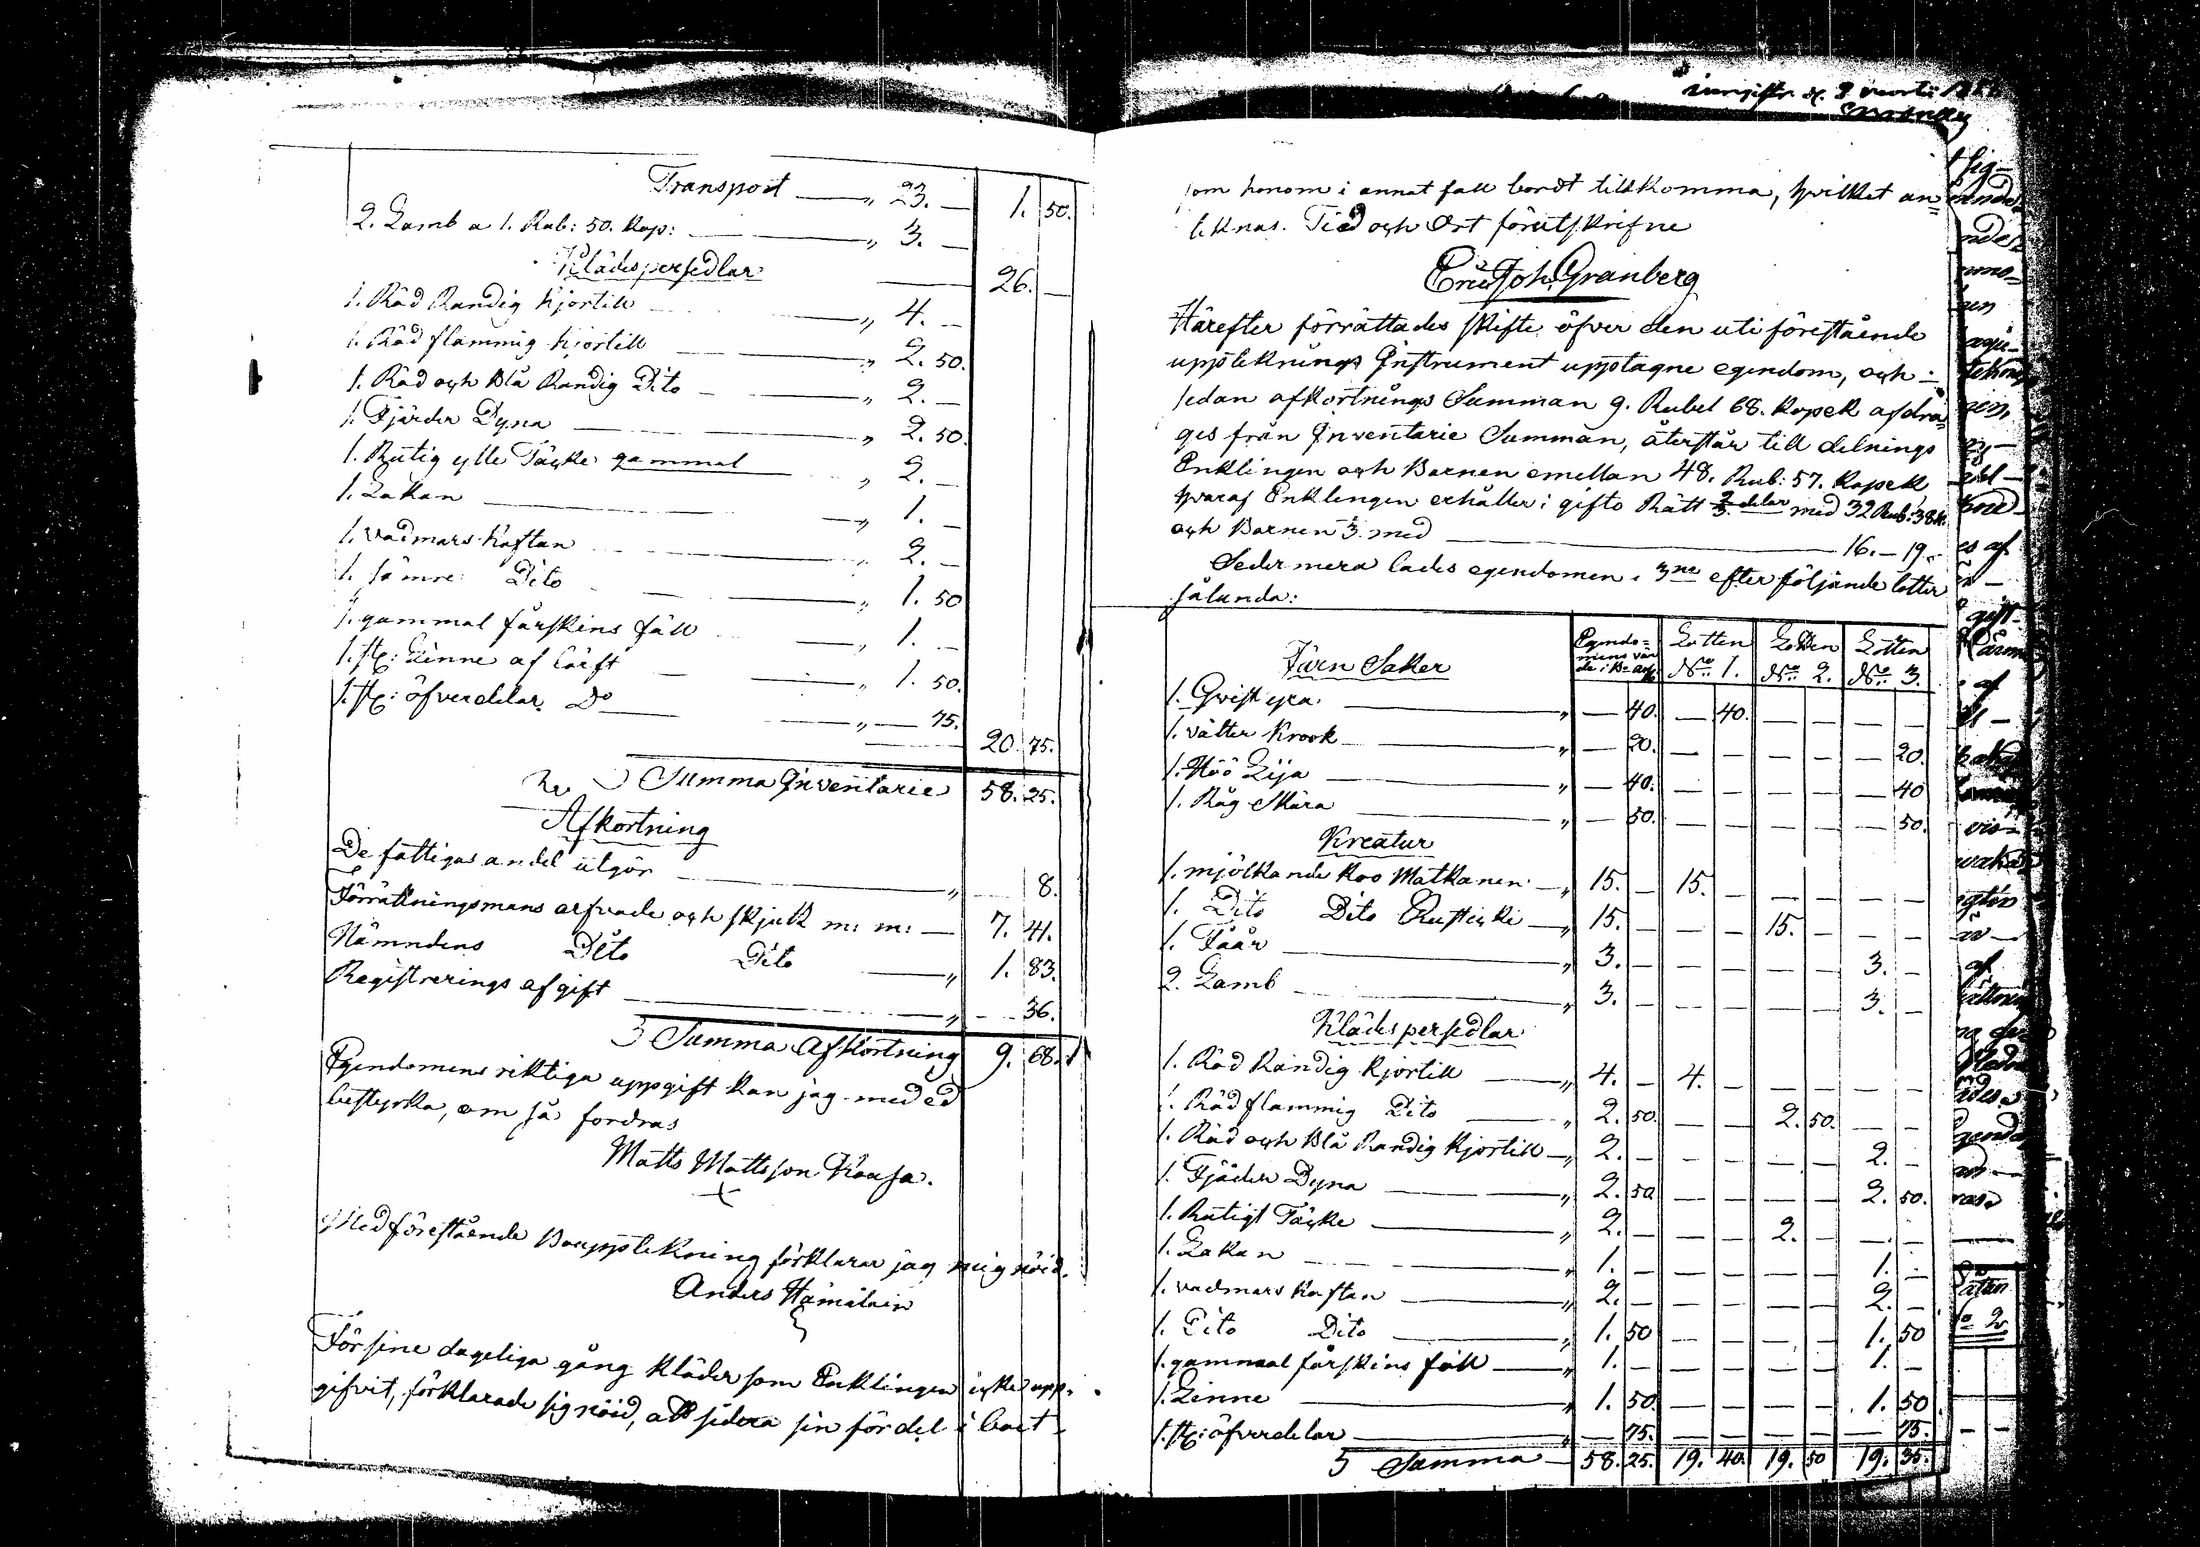 Transport — " 23. — 1. 50.
2. Lamb a 1. Rub: 50. Kop: — " 3. —
26. —
Klädespersedlar
1. Räd Randig Kjortill — " 4. —
1. Räd flammig Kjortill — " 2. 50.
1. Räd och Blå Randig Dito — " 2. —
1. Fjärder Dyna — " 2. 50.
1. Rutig ylle Täcke gammal — " 2. —
1. Lakan — " 1. —
1. Vadmars Kaftan — " 2. —
1. sämre Dito — " 1. 50
1. gammal fårskins fäll — " 1. —
1. st: Linne af Lärft — " 1. 50.
1. st: öfverdelar Do — " — 75.
20. 75.
Summa Inventarie 58. 25.
Afkortning
De fattigas andel utgör — " — 8.
Förrättningsmans arfvade och skjuts m: m: — 7. 41.
Nämndens Dito Dito — " 1. 83.
Registrerings afgift — " — 36.
Summa Afkortning 9. 68.
Egendomens riktiga uppgift kan jag med ed
bestyrka, om så fordras
Matts Mattsson Kaasa.
Med förestående Bouppteckning förklarar jag mig nöid.
Anders Hämälain
För sine dageliga gång kläder som Enklingen icke upp-
gifvit, förklarade sig nöid, att sidera sin fördel i boet
ingifv. d. 9 martii
som honom i annat fall bordt tillkomma, hvilket an=
teknas. Tied och Ort förutskrifne
Eric Joh. Granberg
Härefter förrättades skifte öfver den uti förestående
uppteknings Instrument upptagne egendom, och
sedan afkortnings Summan 9. Rubel 68. Kopek afdra=
ges från Inventarie Summan, återstår till delnings
Enklingen och Barnen emellan 48. Rub: 57. Kopek
hvaraf Enklingen erhåller i gifto Rätt 2/3 delar med 32 Rub: 38 k.
och Barnen 1/3 med — 16. — 19.
Sedermera lades egendomen i 3ne efter följande lotter
sålunda:
Järn Saker Egendo= mens vär de i Lotten No 1. Lotten No 2. Lotten No 3.
1. Qvist yxa — " — 40. — 40. — — — —
1. Välter Krook — " — 20. — — — — — 20.
1. Höö Lija — " — 40. — — — — — 40
1. Råg Skära — " — 50. — — — — — 50.
Kreatur
1. mjölkande Koo Matkanen — " 15. — 15. — — — — —
1. Dito Dito Rusticki — " 15. — — — 15. — — —
1. Fåår — " 3. — — — — — 3. —
2. Lamb — " 3. — — — — — 3. —
Klädespersedlar
1. Räd Randig Kjortill — " 4. — 4. — — — — —
1. Räd flammig Dito — " 2. 50. — — 2. 50. — —
1. Räd och Blå Randig Kjortill — " 2. — — — — — 2. —
1. Fjäder Dyna — " 2. 50 — — — — 2. 50.
1. Rutigt Täcke — " 2. — — — 2. — — —
1. Lakan — " 1. — — — — — 1. —
1. Vadmars Kaftan — " 2. — — — — — 2. —
1. Dito Dito — " 1. 50 — — — — 1. 50
1. gammaal fårskins fäll — " 1. — — — — — 1. —
1. Linne — " 1. 50. — — — — 1. 50
1. st: öfverdelar — " — 75. — — — — — 75.
Summa — 58. 25. 19. 40. 19. 50 19. 35.